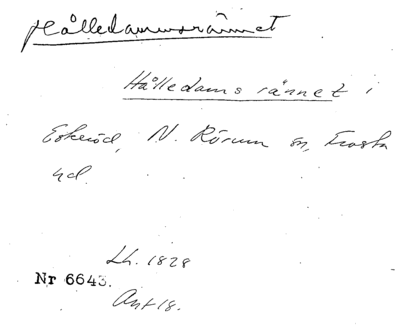 Hålledammsrännet
Hålledams rännet i
Eskeröd, N. Rörum sn, Frosta
hd.
Lh. 1828
Nr 6643.
Ant 18.